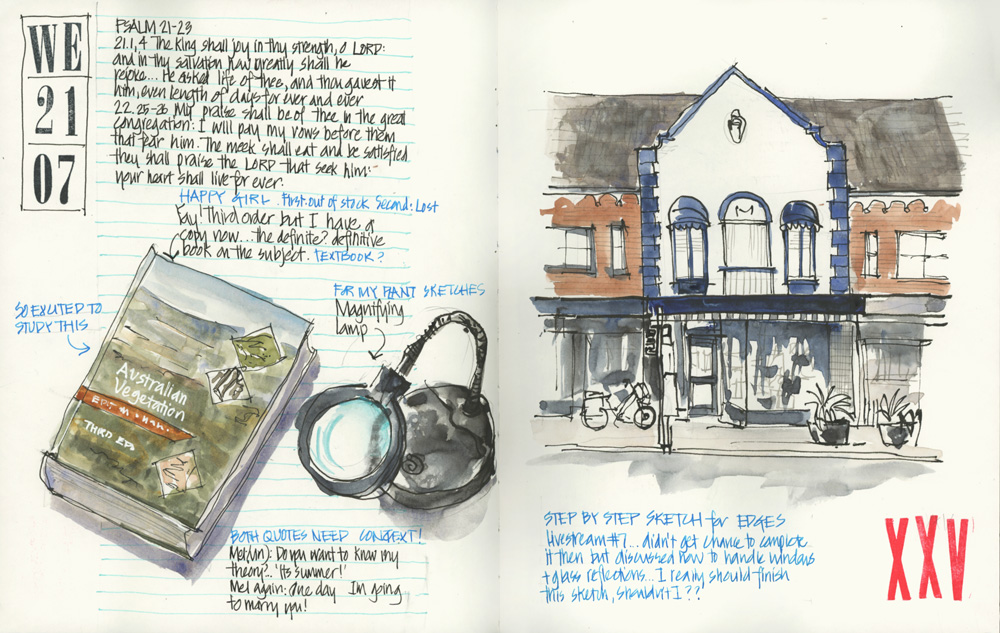 WE
21
07
PSALM 21-23
21.1,4 The King shall joy in thy strength, O LORD:
and in thy salvation how greatly shall he
rejoice... He asked life of thee, and thou gavest it
him, even length of days for ever and ever
22.25-26 My praise shall be of thee in the great
congregation: I will pay my vows before them
that fear him. The meek shall eat and be satisfied
they shall praise the LORD that seek him:
your heart shall live for ever.
HAPPY GIRL. First: out of stock Second: Lost
Yay! Third order but I have a
copy now... the definite? definitive
book on the subject. TEXTBOOK?
SO EXCITED TO
STUDY THIS
FOR MY PLANT SKETCHES
Magnifying
lamp
Australian
Vegetation
THIRD ED.
BOTH QUOTES NEED CONTEXT!
Do you want to know my
theory?.. 'Its summer!'
Mel again: One day I'm going
to marry you!
M
STEP BY STEP SKETCH for EDGES
Livestream #7... didn't get chance to complete
it then but discussed how to handle windows
+ glass reflections... I really should finish
this sketch, shouldn't I??
XXV